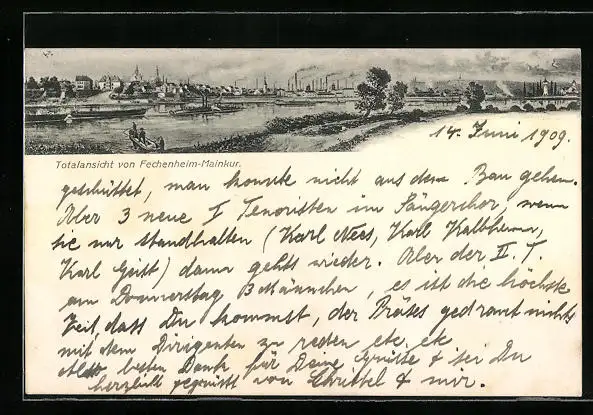 14. Juni 1909.
Totalansicht von Fechenheim-Mainkur.
geschüttet, man konnte nicht aus dem Bau gehen.
Aber 3 neue I Tenoristen im Sängerchor, wenn
sie nur standhalten (Karl Nees, Karl Kalbhenn,
Karl) dann gehts wieder. Aber der II. T.
am Donnerstag 3 Männchen, es ist die höchste
Zeit, dass Du kommst, der Präses gedraut nichts
mit dem Dirigenten zu reden etc. etc
Also besten Dank für Deine Grüsse & sei Du
herzlich gegrüsst von & mir.